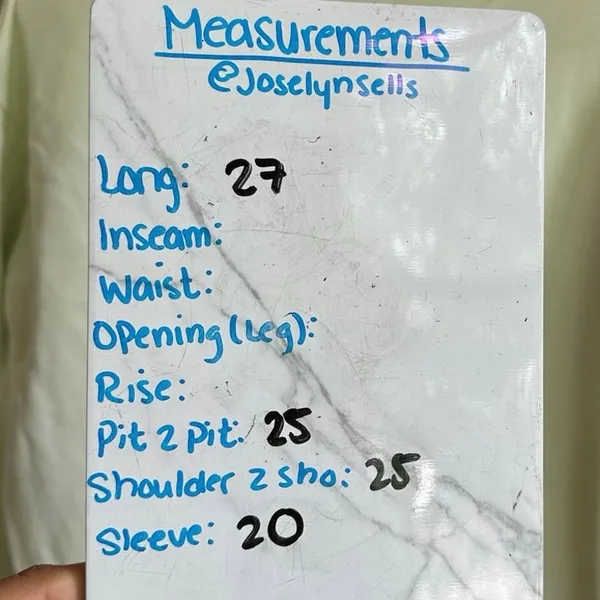 Measurements
@Joselynsells
Long: 27
Inseam:
Waist:
Opening (Leg):
Rise:
Pit 2 pit: 25
Shoulder 2 sho: 25
Sleeve: 20